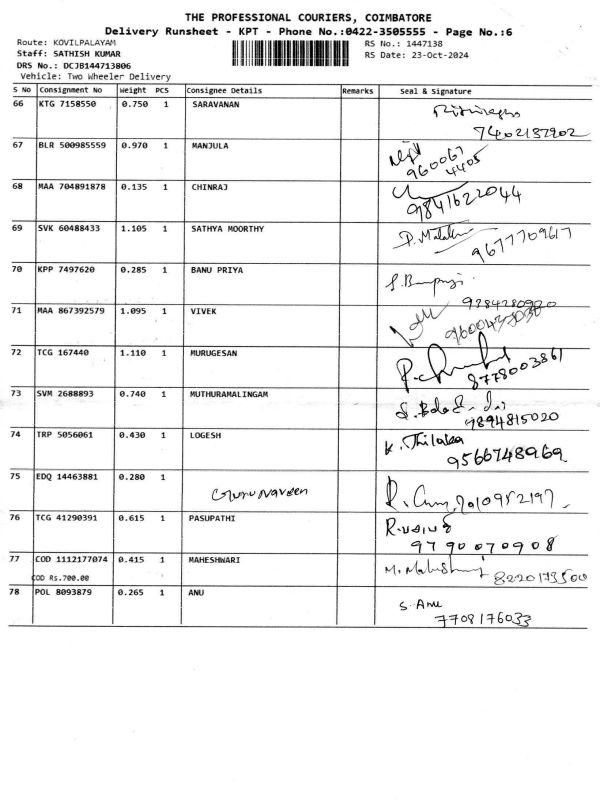 THE PROFESSIONAL COURIERS, COIMBATORE
Delivery Runsheet - KPT - Phone No.:0422-3505555 - Page No.:6
Route: KOVILPALAYAM RS No.: 1447138
Staff: SATHISH KUMAR RS Date: 23-Oct-2024
DRS No.: DCJB144713806
Vehicle: Two Wheeler Delivery
S No Consignment No Weight PCS Consignee Details Remarks Seal & Signature
66 KTG 7158550 0.750 1 SARAVANAN
7402137902
67 BLR 500985559 0.970 1 MANJULA
960067
4405
68 MAA 704891878 0.135 1 CHINRAJ
9841622044
69 SVK 60488433 1.105 1 SATHYA MOORTHY
9677709617
70 KPP 7497620 0.285 1 BANU PRIYA
9384280920
71 MAA 867392579 1.095 1 VIVEK
72 TCG 167440 1.110 1 MURUGESAN
8778003861
73 SVM 2688893 0.740 1 MUTHURAMALINGAM
9894815020
74 TRP 5056061 0.430 1 LOGESH K. Thilaka
9566748969
75 EDQ 14463881 0.280 1
Gurunaveen
76 TCG 41290391 0.615 1 PASUPATHI
9790070908
77 COD 1112177074 0.415 1 MAHESHWARI
COD Rs.700.00
78 POL 8093879 0.265 1 ANU S. Anu
7708176033